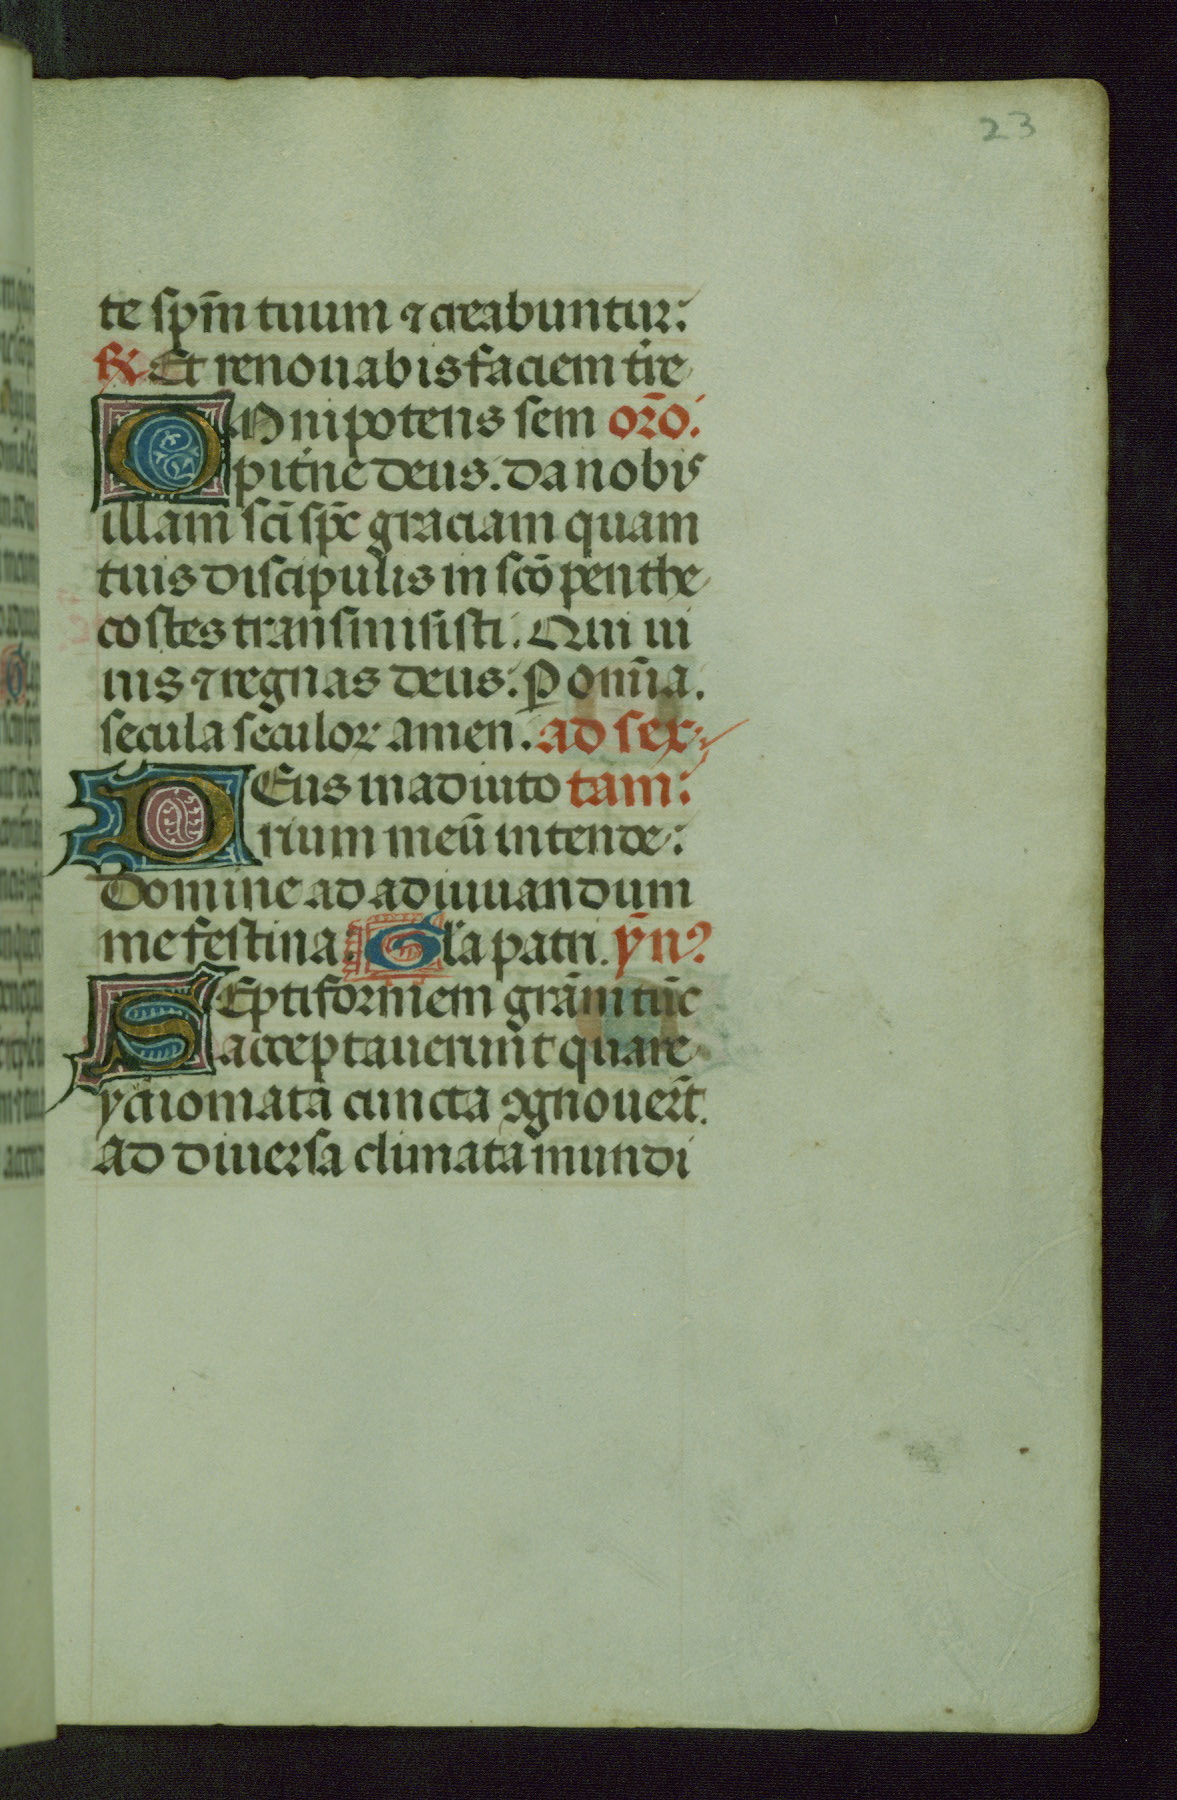 23
te sp̄m tuum ⁊ creabuntur:
℟ Et renouabis faciem tr̄re
OMnipotens sem or̄o:
pit̄ne deus. da nobis
illam sc̄i sp̄c graciam quam
tuis discipulis in sc̄o penthe
costes transmisisti. Qui ui
uis ⁊ regnas deus. P om̄ia.
secula seculor amen. ad sex
DEus in adiuto tam:
rium meū intende:
Domine ad adiuuandum
me festina. Gl̄a patri. ȳn?
SEptiformem grām tūc
acceptauerunt quare
ydiomata cuncta ꝯgnouer̄t.
Ad diuersa climata mundi